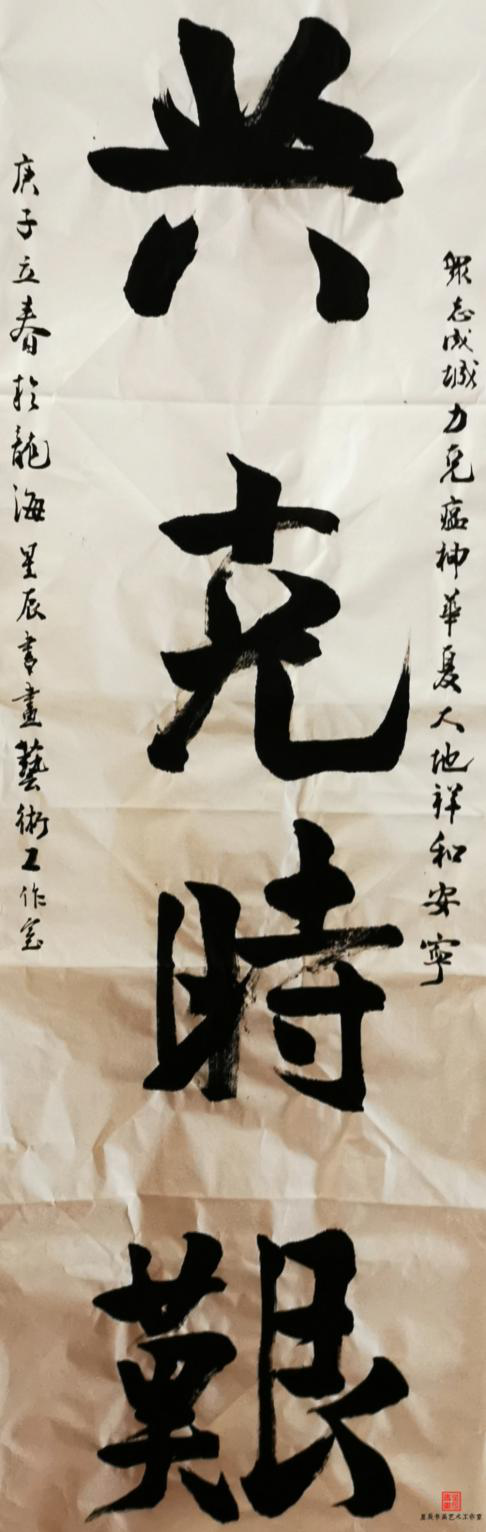 共克時艱
眾志成城力克瘟神華夏大地祥和安寧
庚子立春於龍海星辰書畫藝術工作室
星辰书画艺术工作室